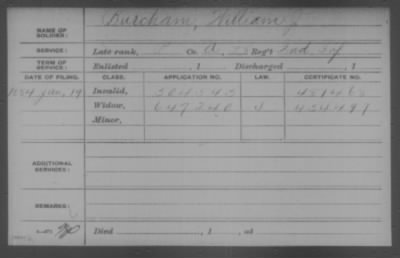 NAME OF SOLDIER: Burcham, William J
SERVICE: Late rank, P Co. A, 23 Reg't Ind. Inf
TERM OF SERVICE: Enlisted , 1 Discharged , 1
DATE OF FILING. CLASS. APPLICATION NO. LAW. CERTIFICATE NO.
1884 Jan, 19 Invalid,
Widow, 647240
Minor,
ADDITIONAL SERVICES:
REMARKS:
Died , 1 , at